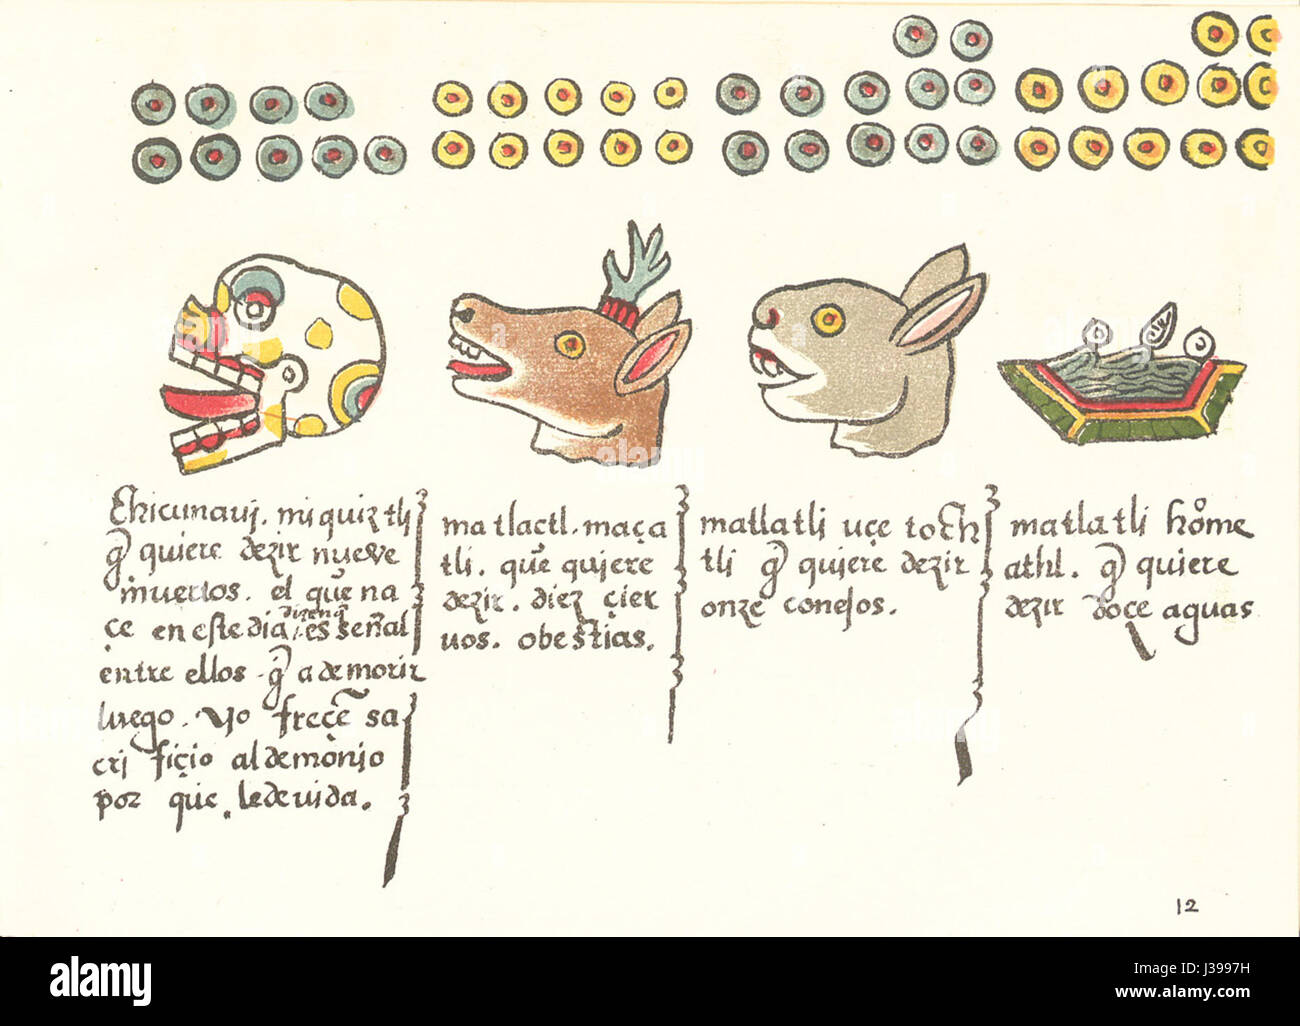 Chicunavi. miquiztli
q̃ quiere dezir nueve
muertos. el que na
çe en este dia dizen q̃ es señal
entre ellos q̃ a de morir
luego. Yo freçẽ sa
cri fiçio al demonio
por que. le de vida.
matlactl. maça
tli. que quiere
dezir. diez çier
uos. obestias.
matlatli uçe toch
tli q̃ quiere dezir
onze conejos.
matlatli home
athl. q̃ quiere
dezir doce aguas
12
alamy
Image ID: J3997H
www.alamy.com